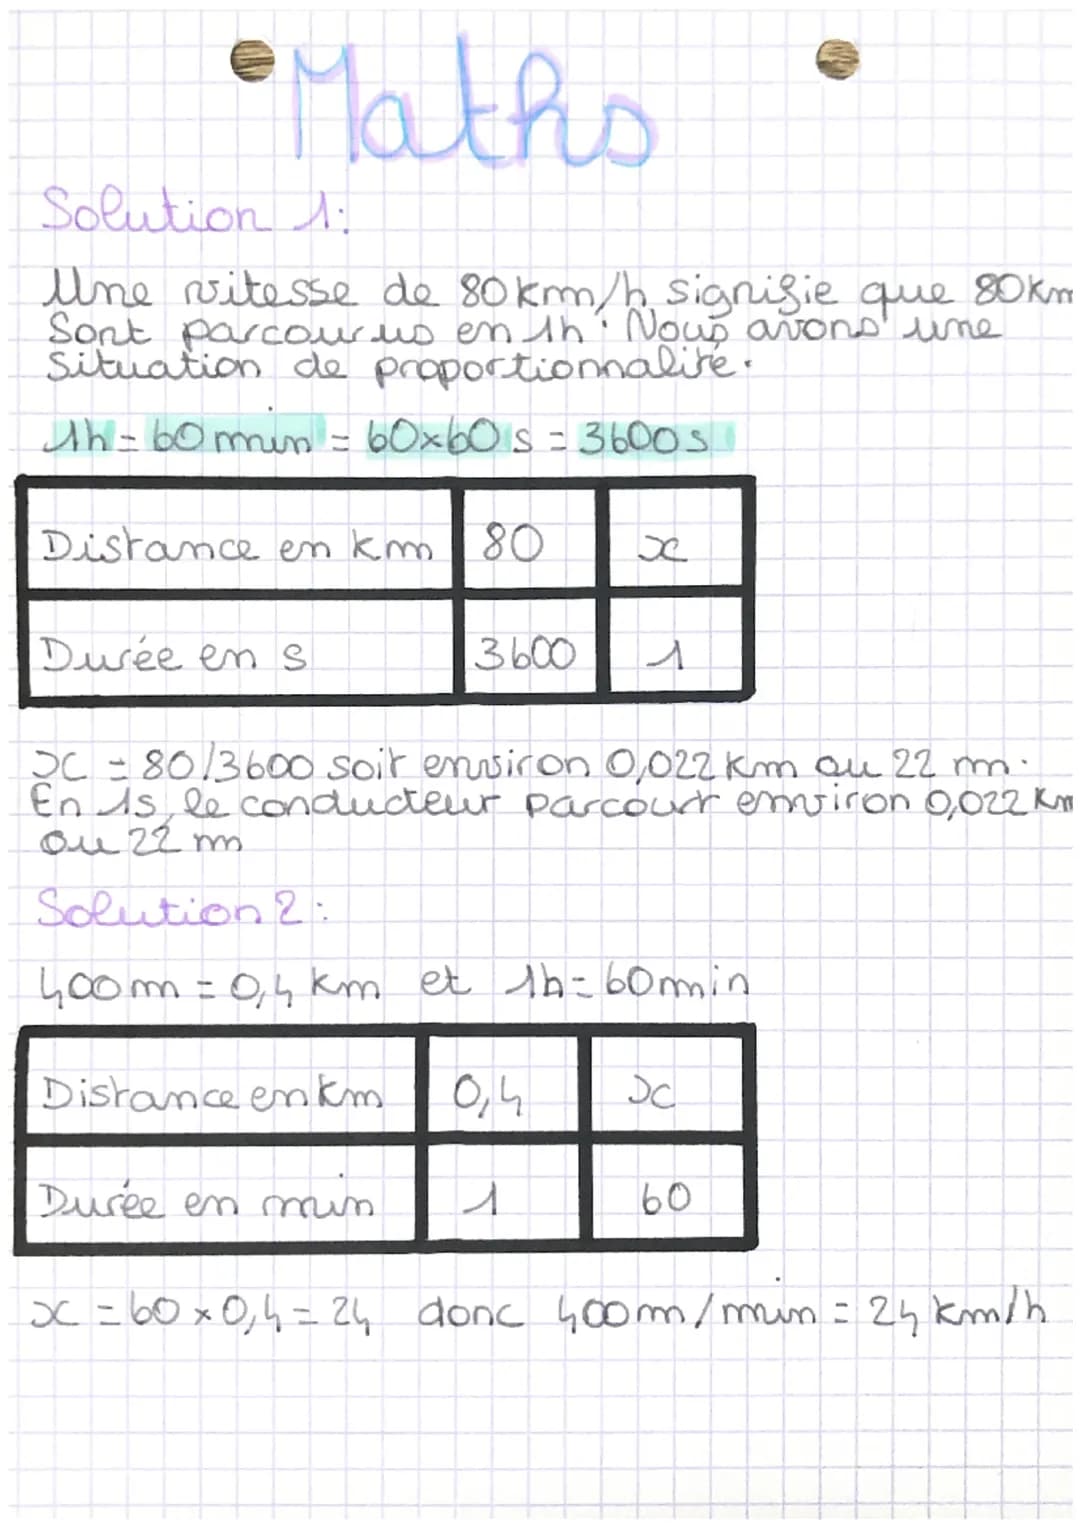 Maths
Solution 1:
Une vitesse de 80km/h signifie que 80km
sont parcourus en 1h. Nous avons une
situation de proportionnalité.
1h = 60 min = 60×60 s = 3600 s
Distance en km 80 x
Durée en s 3600 1
x = 80/3600 soit environ 0,022 km ou 22 m.
En 1s, le conducteur parcourt environ 0,022 km
ou 22 m
Solution 2:
400m = 0,4 km et 1h = 60min
Distance en km 0,4 x
Durée en min 1 60
x = 60 × 0,4 = 24 donc 400m/min = 24 km/h